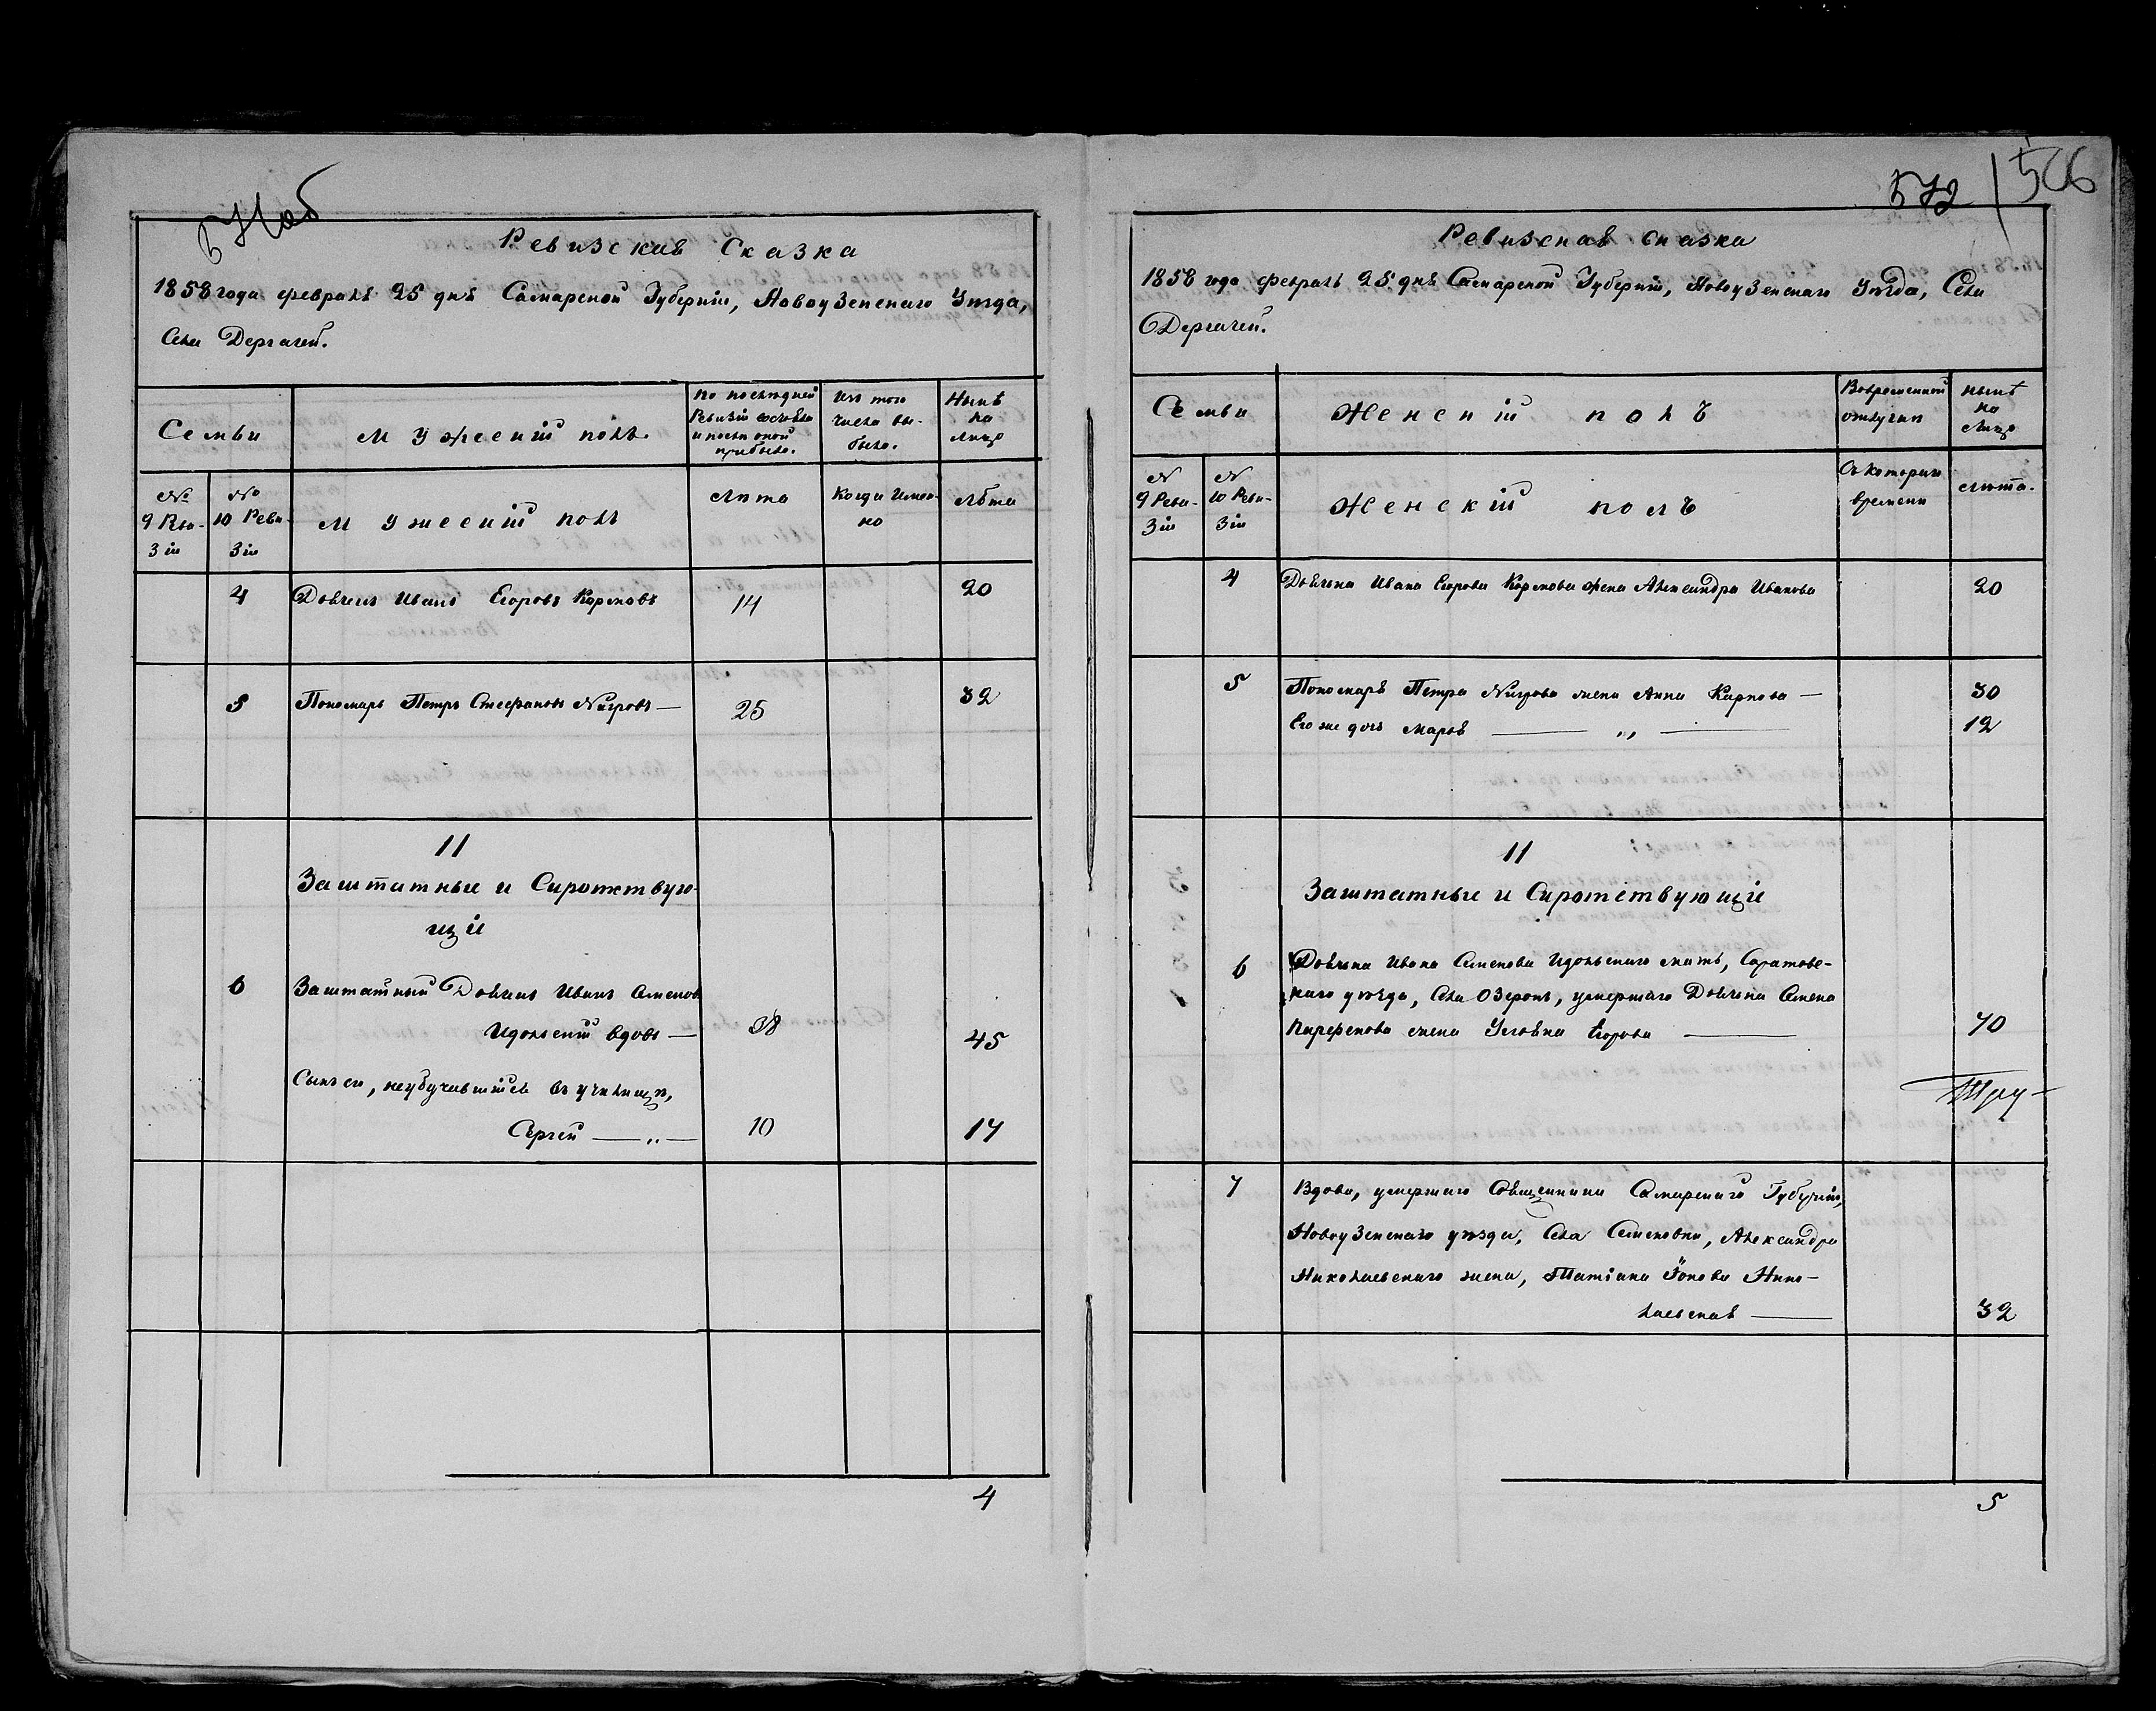 571 об
Ревизская Сказка
1858 года февраля 25 дня Самарской Губернiи, Новоузенскаго Уѣзда,
Села Дергачей.
Семьи
Мужескiй полъ.
По послѣдней Ревизiи состояло и послѣ оной прибыло.
Изъ того числа выбыло.
Нынѣ на лицо
№ 9 Ревизiи
№ 10 Ревизiи
Мужескiй полъ
Лѣта
Когда именно
Лѣта
4 Дьячекъ Иванъ Егоровъ 14 20
5 Пономарь Петръ Стефановъ — 25 32
11
Заштатные и Сиротствую-
щiе
6 Заштатный Дьячекъ Иванъ Семеновъ
Идольскiй вдовъ — 38 45
Сынъ его, необучавшiйся въ училищѣ,
Сергей — „ — 10 17
4
572 506
Ревизская сказка
1858 года февраля 25 дня Самарской Губернiи, Новоузенскаго Уѣзда, Села
Дергачей.
Семьи
Женскiй полъ
Вовременной отлучкѣ
Нынѣ на Лицо
№ 9 Ревизiи
№ 10 Ревизiи
Женскiй полъ
Съ котораго времени
Лѣта.
4 Дьячка Ивана Егорова жена Александра Иванова 20
5 Пономаря Петра жена Анна Карпова — 30
Его же дочь Марья — „ — 12
11
Заштатные и Сиротствующiе
6 Дьячка Ивана Семенова Идольскаго мать, Саратовс-
каго уѣзда, Села Озерокъ, умершаго Дьячка Семена
Парфенова жена Егорова — 70
7 Вдова, умершаго Священника Самарскаго Губернiи,
Новоузенскаго уѣзда, Села Семеновки, Александра
Николаевскаго жена, Татiана Iонова Нико-
лаевская — 32
5